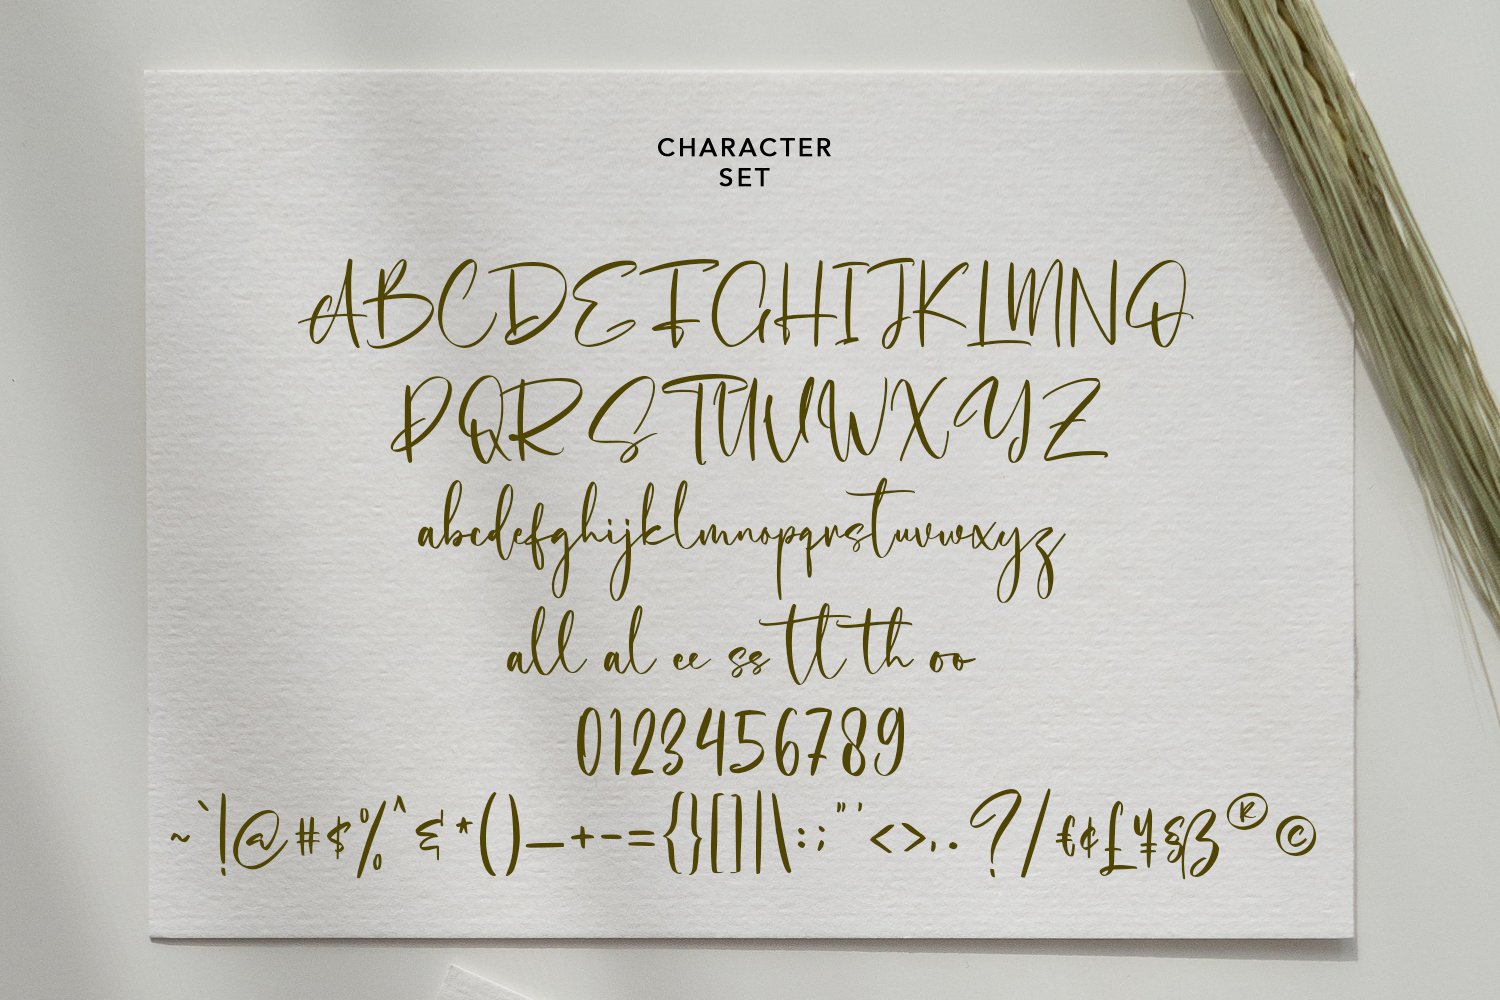 CHARACTER
SET
ABCDEFGHIJKLMNO
PQRSTUVWXYZ
abcdefghijklmnopqrstuvwxyz
all al ee ss tt th oo
0123456789
~`!@#$%^&*()_+-={}[]|\:;"'<>,.?/€¢£¥§ß®©